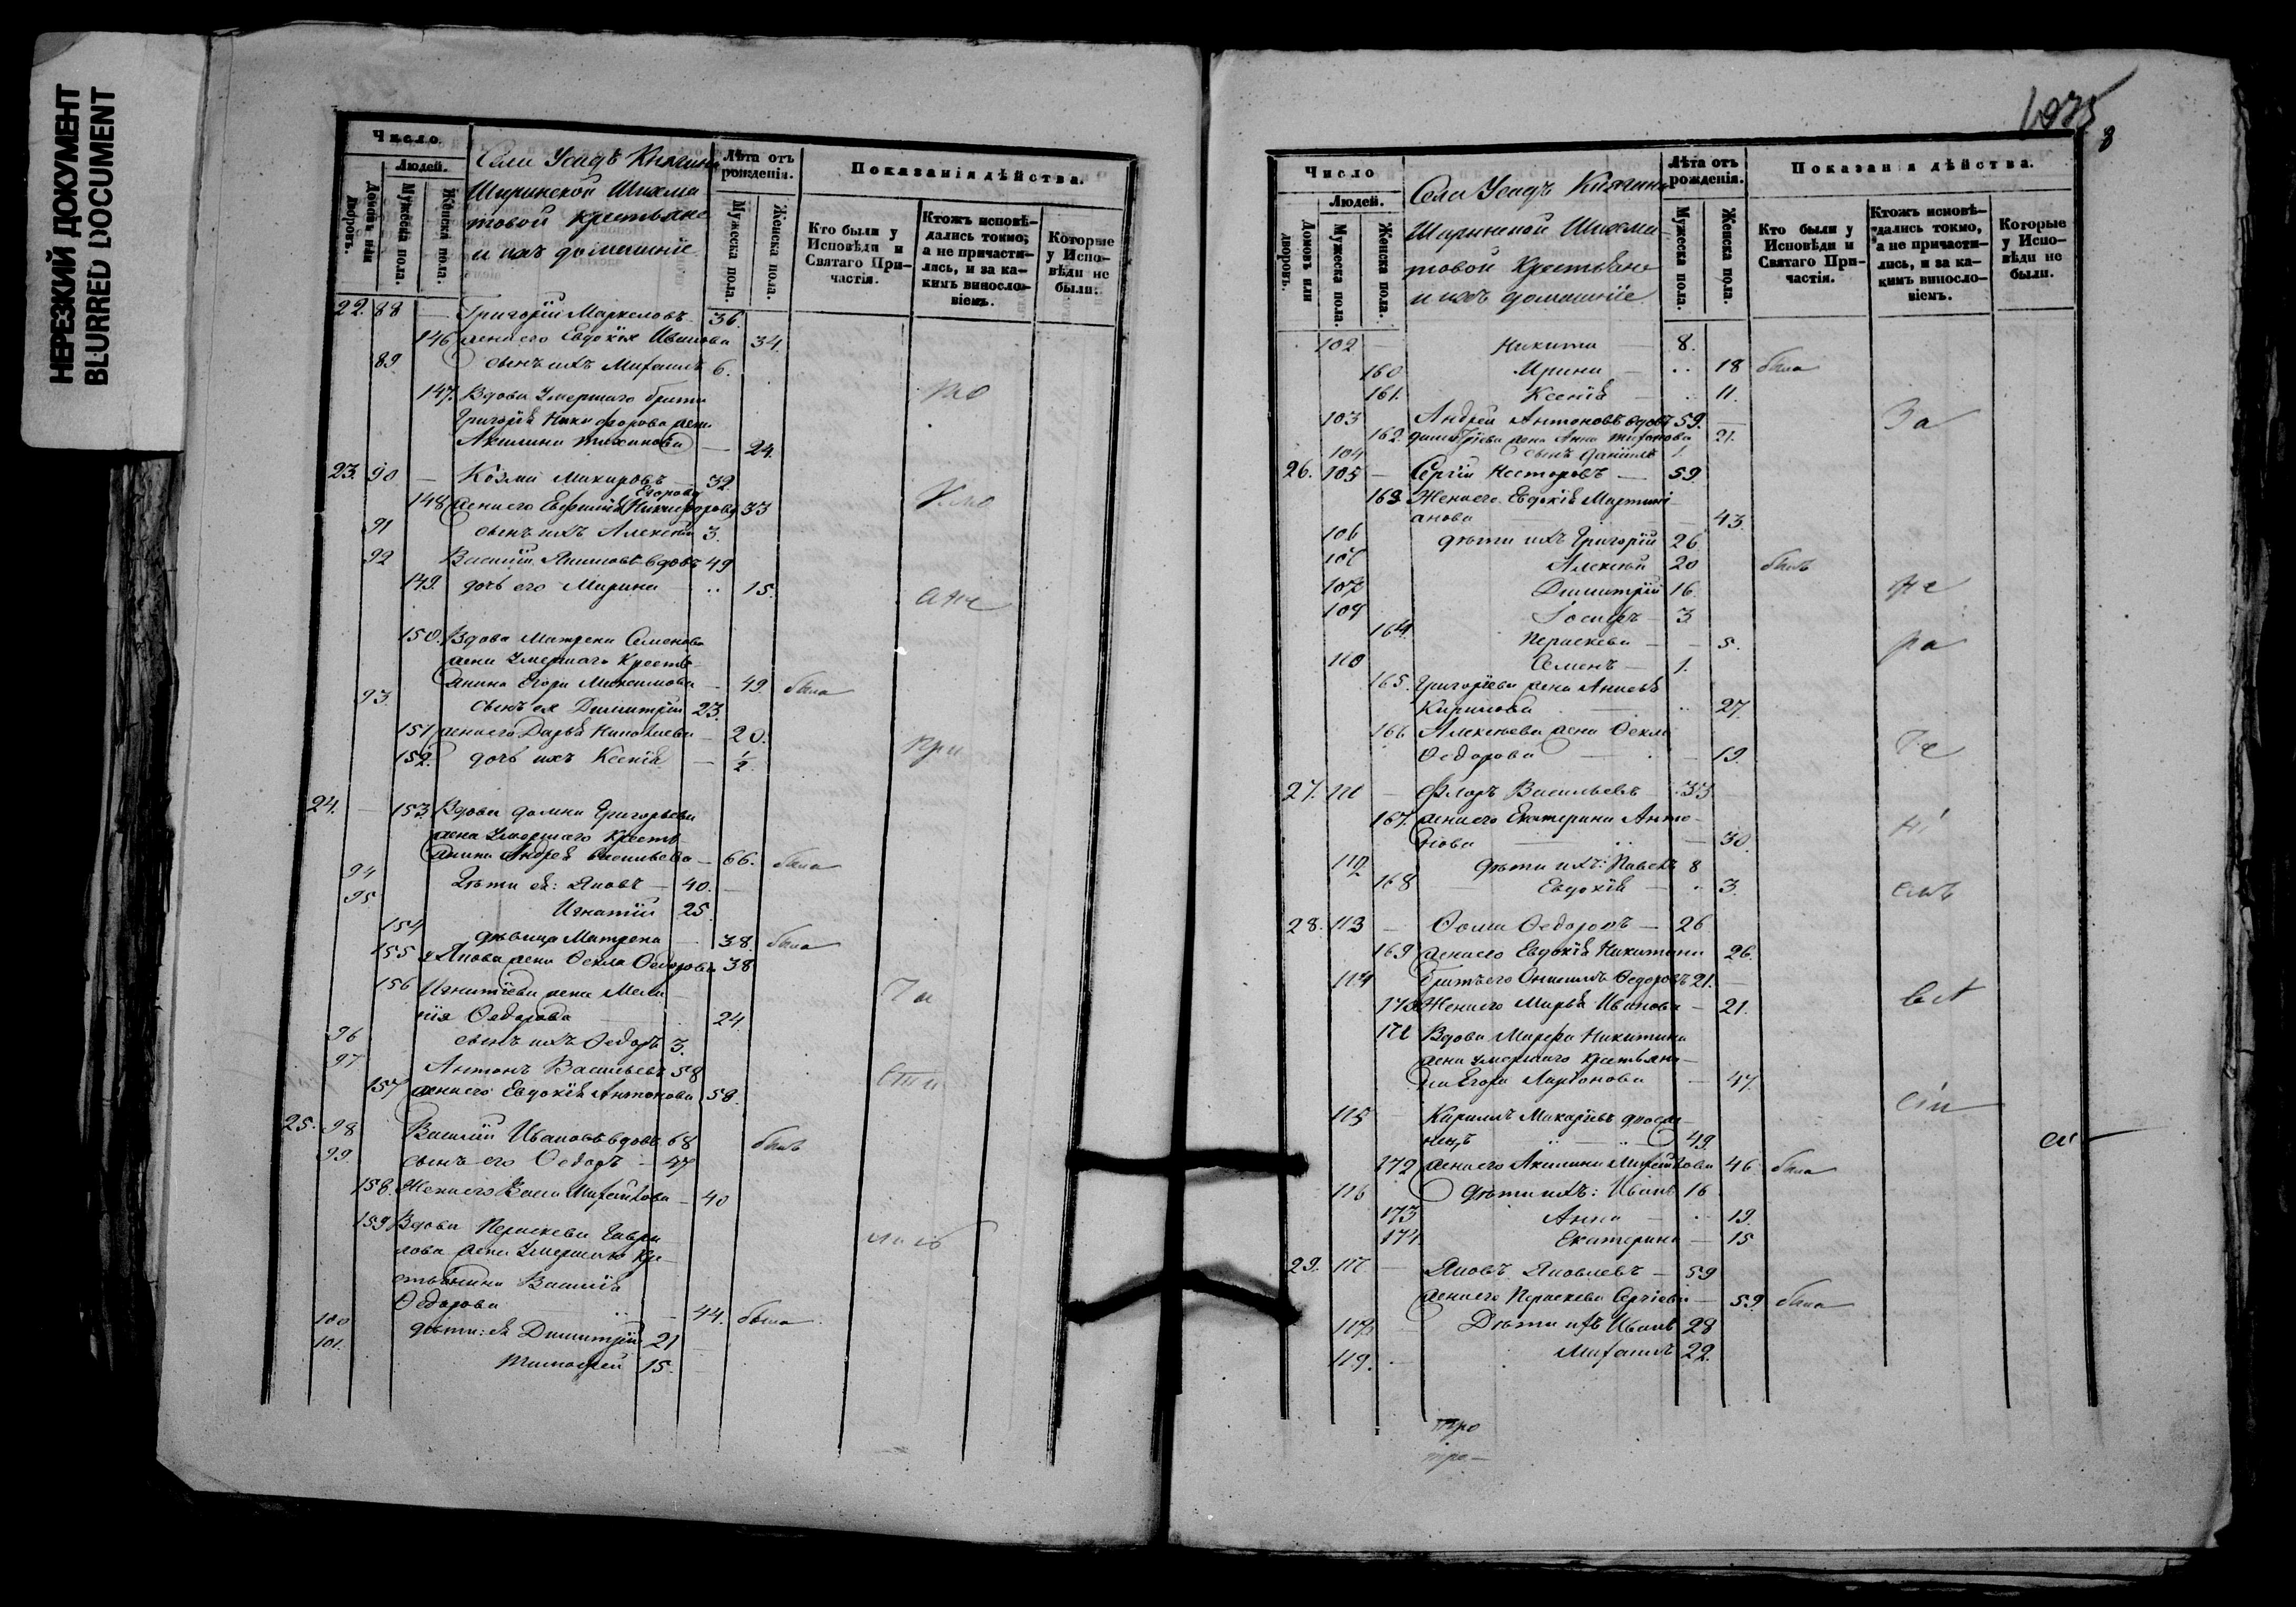 НЕРЕЗКИЙ ДОКУМЕНТ
BLURRED DOCUMENT
Число
Людей.
Домовъ или дворовъ.
Мужеска пола.
Женска пола.
Села Усадъ Княгини
Ширинской Шихма
товой крестьяне
и ихъ домашніе
Лѣта отъ рожденія.
Мужеска пола.
Женска пола.
Показанія дѣйства.
Кто были у Исповѣди и Святаго Причастія.
Ктожъ исповѣдались токмо, а не причастились, и за какимъ винословіемъ.
Которые у Исповѣди не были.
22. 88 — Григорій Маркеловъ 36.
146 жена его Евдокія Иванова 34.
89 сынъ ихъ Михаилъ 6.
147. Вдова Умершаго брата
Григорія Никифорова жена
Акилина — 24.
23. 90 — Козма Макаровъ — 32
Егорова
148 жена его Евфимія Никифорова 33
91 сынъ ихъ Алексѣй 3.
92 Василій вдовъ 49
149. дочь его Марина — .. 15.
150. Вдова Матрена Семенова
жена Умершаго Кресть-
янина Егора Максимова — 49. была
93. сынъ ея Димитрій 23.
151 жена его Дарья — 20.
152. дочь ихъ Ксенія — ½
24. — 153 Вдова Домна Григорьева
жена Умершаго Кресть
янина Андрея Васильева — 66. была
94 Дѣти ея: Яковъ — 40. —
95 Игнатій 25.
154 дѣвица Матрена — 38. была
155 Якова жена Ѳекла Ѳедорова 38
156 Игнатіева жена Мела-
нія Ѳедорова — 24.
96 сынъ ихъ Ѳедоръ 3.
97 Антонъ Васильевъ 58
157 жена его Евдокія Антонова 58.
25. 98 Василій Ивановъ вдовъ 68 былъ
99 сынъ его Ѳедоръ — 47
158. Жена его Васса Михайлова — 40
159 Вдова Параскева Гаври
лова жена Умершаго Кре-
стьянина Василія
Ѳедорова .. — 44. была
100 дѣти: ея Димитрій 21
101. Тимоѳей 15.
8
Число
Людей.
Домовъ или дворовъ.
Мужеска пола.
Женска пола.
Села Усадъ Княгини
Ширинской Шихма-
товой Крестьяне
и ихъ домашніе
Лѣта отъ рожденія.
Мужеска пола.
Женска пола.
Показанія дѣйства.
Кто были у Исповѣди и Святаго Причастія.
Ктожъ исповѣдались токмо, а не причастились, и за какимъ винословіемъ.
Которые у Исповѣди не были.
102 — Никита — 8.
160 Ирина — .. 18 была
161. Ксенія — .. 11.
103 Андрей Антоновъ вдовъ 59. —
162. жена Анна 21.
104 сынъ Даніилъ 1.
26. 105 — Сергій Несторовъ — 59.
163 Жена его Евдокія Мартині-
анова — 43.
106 дѣти ихъ Григорій 26
107 Алексѣй 20 былъ
108 Димитрій 16.
109 Іосифъ — 3
164. Параскева — — 5.
110 Семенъ — 1.
165. Григорьева жена Анисья
Карпова — .. 27.
166 Алексѣева жена Ѳекла
Ѳедорова — . — 19.
27. 111 — Флоръ Васильевъ — 35
167. жена его Екатерина Анто-
нова .. — 30.
112 дѣти ихъ: Павелъ 8
168 Евдокія — . 3.
28. 113 — Ѳома Ѳедоровъ — 26
169 жена его Евдокія Никитина 26.
114 Братъ его Онисимъ Ѳедоровъ 21. —
170 Жена его Марья Иванова — 21.
171 Вдова Марѳа Никитина
жена умершаго крестьяни-
на Егора Ларіонова — 47.
115 Кирилъ Макаріевъ
.. — .. 49.
172 жена его Акилина Михайлова 46 была
116 дѣти ихъ: Иванъ 16
173 Анна — .. 19.
174. Екатерина — 15
29. 117. — Яковъ Яковлевъ — 59
жена его Параскева Сергіева — 59 была
118 Дѣти ихъ Иванъ 28
119. Михаилъ 22.